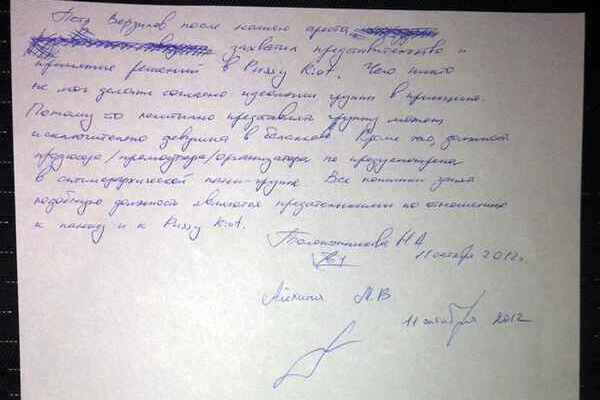 Петр Верзилов после нашего ареста
захватил представительство и
принятие решений в Pussy Riot. Чего никто
не мог делать согласно идеологии группы в принципе.
Потому что легитимно представлять группу может
исключительно девушка в балаклаве. Кроме того, должность
продюсера/промоутера/организатора не предусмотрена
в антииерархической панк-группе. Все попытки занять
подобную должность являются предательскими по отношению
к панку и к Pussy Riot.
Толоконникова Н.А
11 октября 2012г.
Алёхина М.В
11 октября 2012